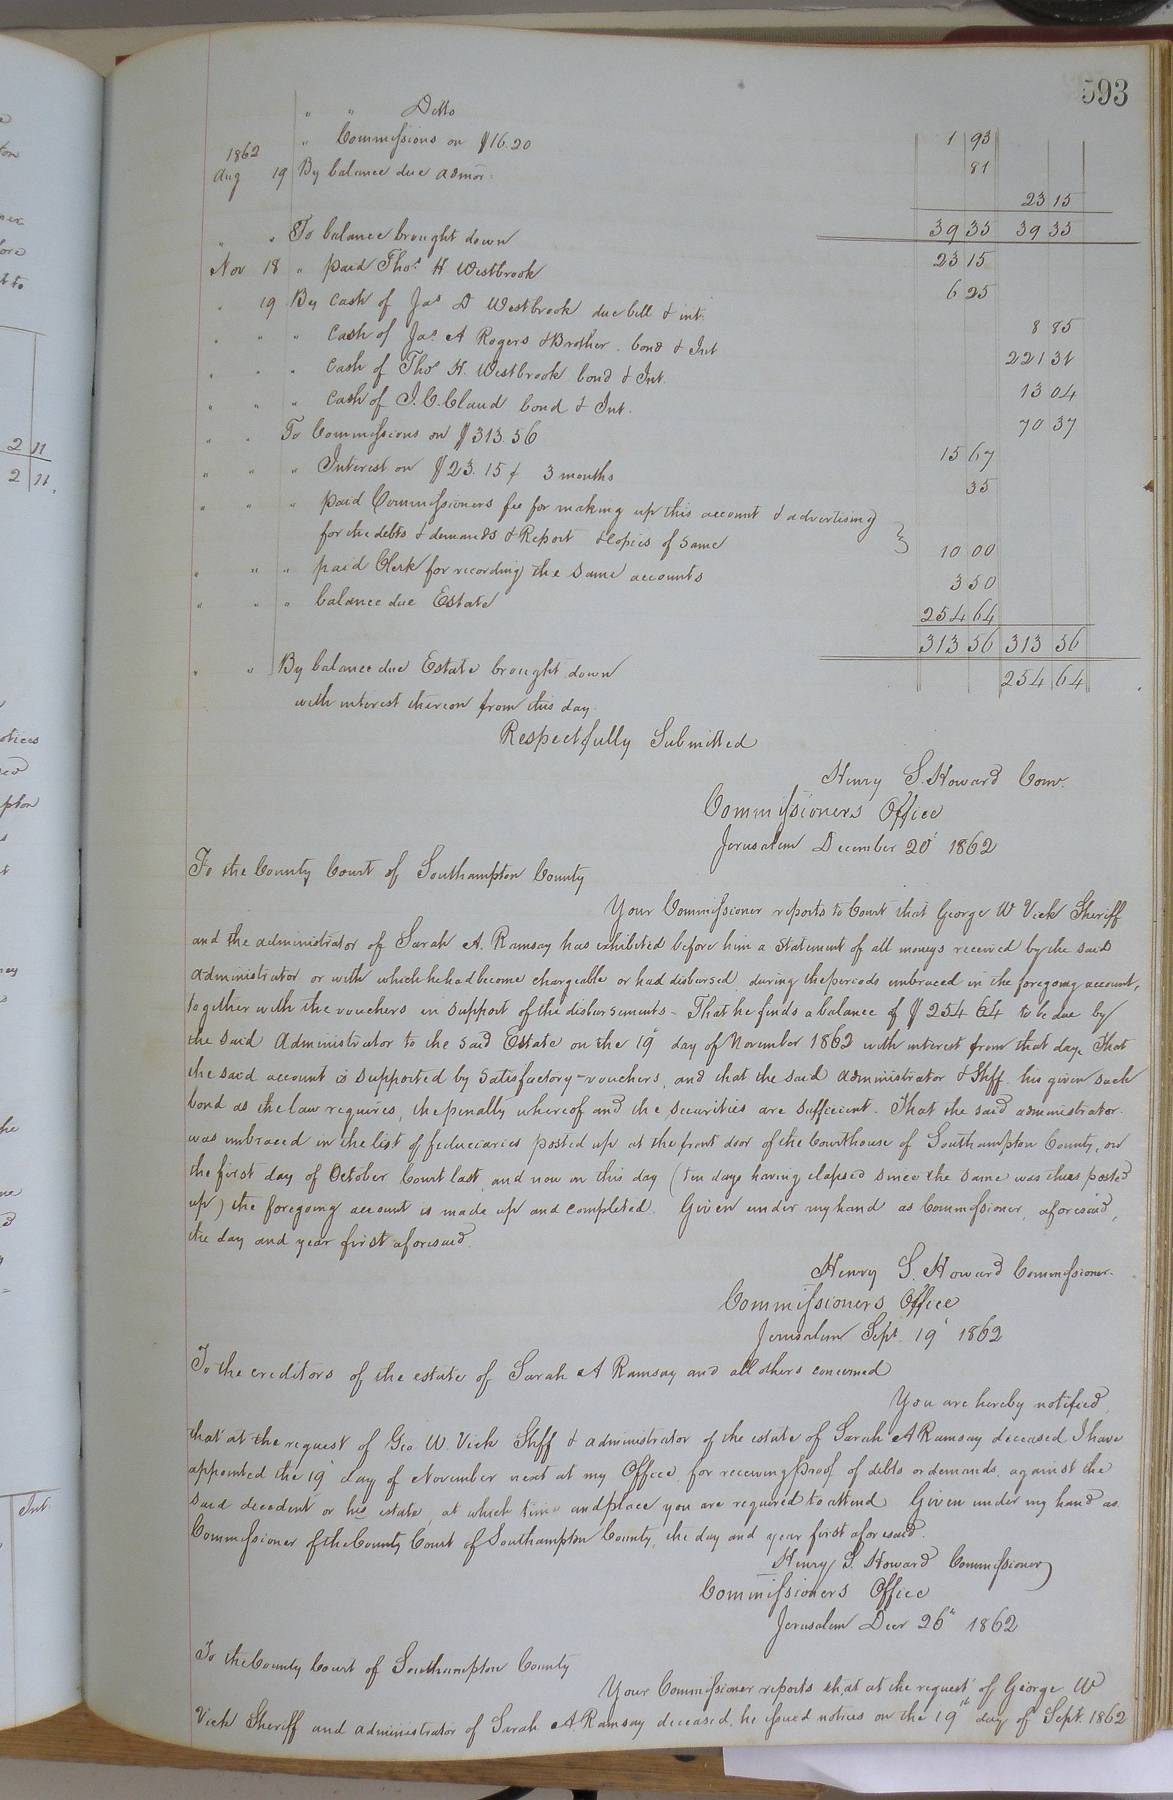 593
" " Ditto 1 93
" Commissions on $16.20 81
1862
Aug 19 By balance due admor. 23 15
39 35 39 35
" " To balance brought down 23 15
Nov 18 " paid Thos H Westbrook 6 25
" 19 By cash of Jas D Westbrook due bill & int. 8 85
" " " cash of Jas A Rogers & Brother bond & Int 221 31
" " " cash of Thos H. Westbrook bond & Int. 13 04
" " " cash of J. C. Claud bond & Int. 70 37
" " To Commissions on $313.56 15 67
" " " Interest on $23.15 f 3 months 35
" " " paid Commissioners fee for making up this account & advertising
for the debts & demands & Report & copies of same 10 00
" " " paid Clerk for recording the same accounts 3 50
" " " balance due Estate 254 64
313 56 313 56
" " By balance due Estate brought down 254 64
with interest thereon from this day.
Respectfully Submitted
Henry S. Howard Comr.
Commissioners Office
Jerusalem December 20' 1862
To the County Court of Southampton County
Your Commissioner reports to Court that George W Vick Sheriff
and the administrator of Sarah A. Ramsay has exhibited before him a statement of all moneys received by the said
administrator or with which he had become chargeable or had disbursed, during the periods embraced in the foregoing account,
together with the vouchers in support of the disbursements - That he finds a balance of $254.64 to be due by
the said Administrator to the said Estate on the 19' day of November 1862 with interest from that day. That
the said account is supported by satisfactory vouchers, and that the said administrator & Shff. his given such
bond as the law requires, the penalty whereof and the securities are sufficient. That the said administrator
was embraced in the list of fiduciaries posted up at the front door of the Courthouse of Southampton County, on
the first day of October Court last, and now on this day (ten days having elapsed since the same was thus posted
up) the foregoing account is made up and completed. Given under my hand as Commissioner, aforesaid,
the day and year first aforesaid.
Henry S. Howard Commissioner.
Commissioners Office
Jerusalem Sept. 19' 1862
To the creditors of the estate of Sarah A Ramsay and all others concerned
You are hereby notified,
that at the request of Geo W. Vick Shff & administrator of the estate of Sarah A Ramsay deceased I have
appointed the 19' day of November next at my Office, for receiving proof of debts or demands, against the
said decedent or his estate, at which time and place you are required to attend. Given under my hand as
Commissioner of the County Court of Southampton County, the day and year first aforesaid.
Henry S. Howard Commissioner
Commissioners Office
Jerusalem Decr 26th 1862
To the County Court of Southampton County
Your Commissioner reports that at the request of George W
Vick Sheriff and administrator of Sarah A Ramsay deceased, he issued notices on the 19th day of Sept. 1862